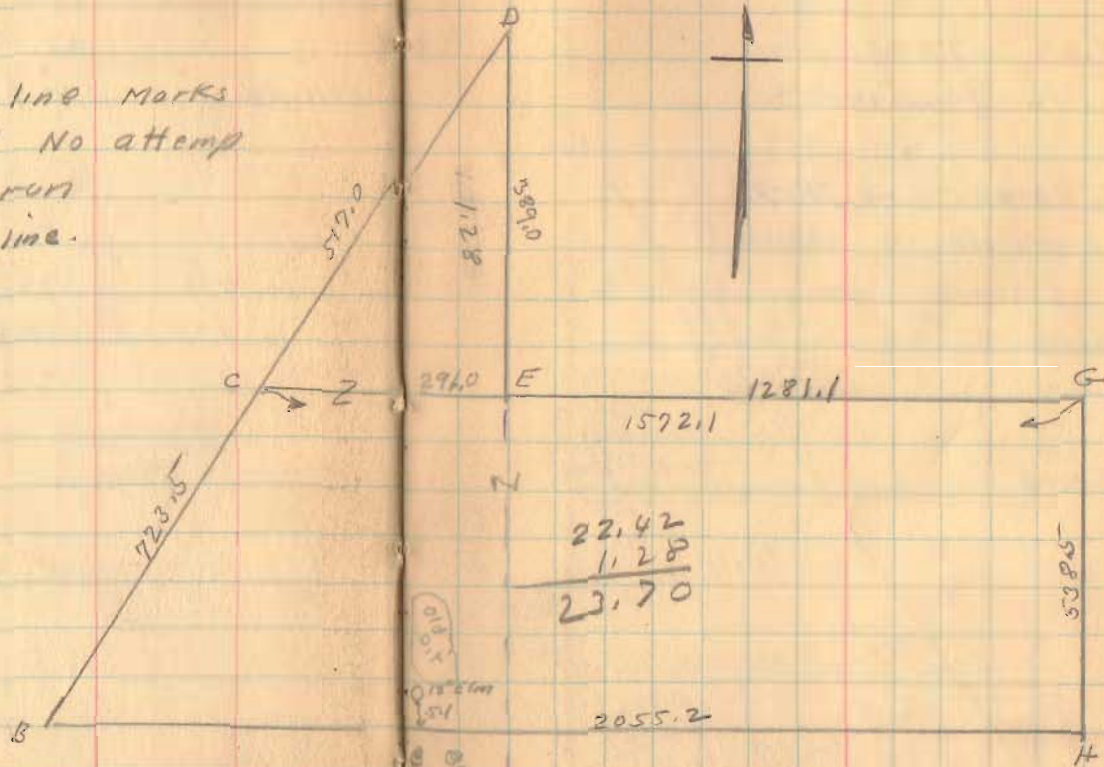 D
line Marks
No attemp
run
line.
517.0
1.28
C
Z
E
1281.1
G
1572.1
723.5
Z
22.42
1.28
23.70
538.5
15" Elm
51
2055.2
B
H